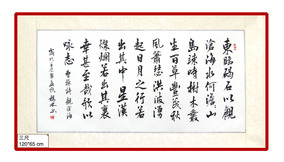 東臨碣石以觀
滄海水何澹澹山
島竦峙樹木叢
生百草豐茂秋
風蕭瑟洪波湧
起日月之行若
出其中星漢
燦爛若出其裏
幸甚至哉歌以
詠志 曹操詩觀滄海
三尺
120*65 cm